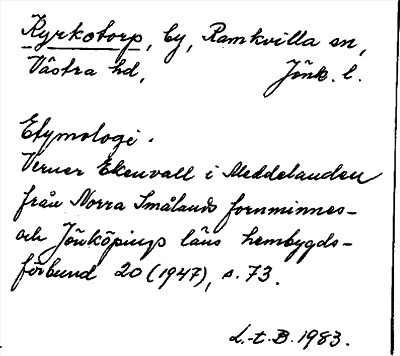 Kyrkotorp, by, Ramkvilla sn,
Västra hd, Jönk. l.
Etymologi.
Verner Ekenvall i Meddelanden
från Norra Smålands fornminnes-
och Jönköpings läns hembygds-
förbund 20 (1947), s. 73.
L.-t. B. 1983.